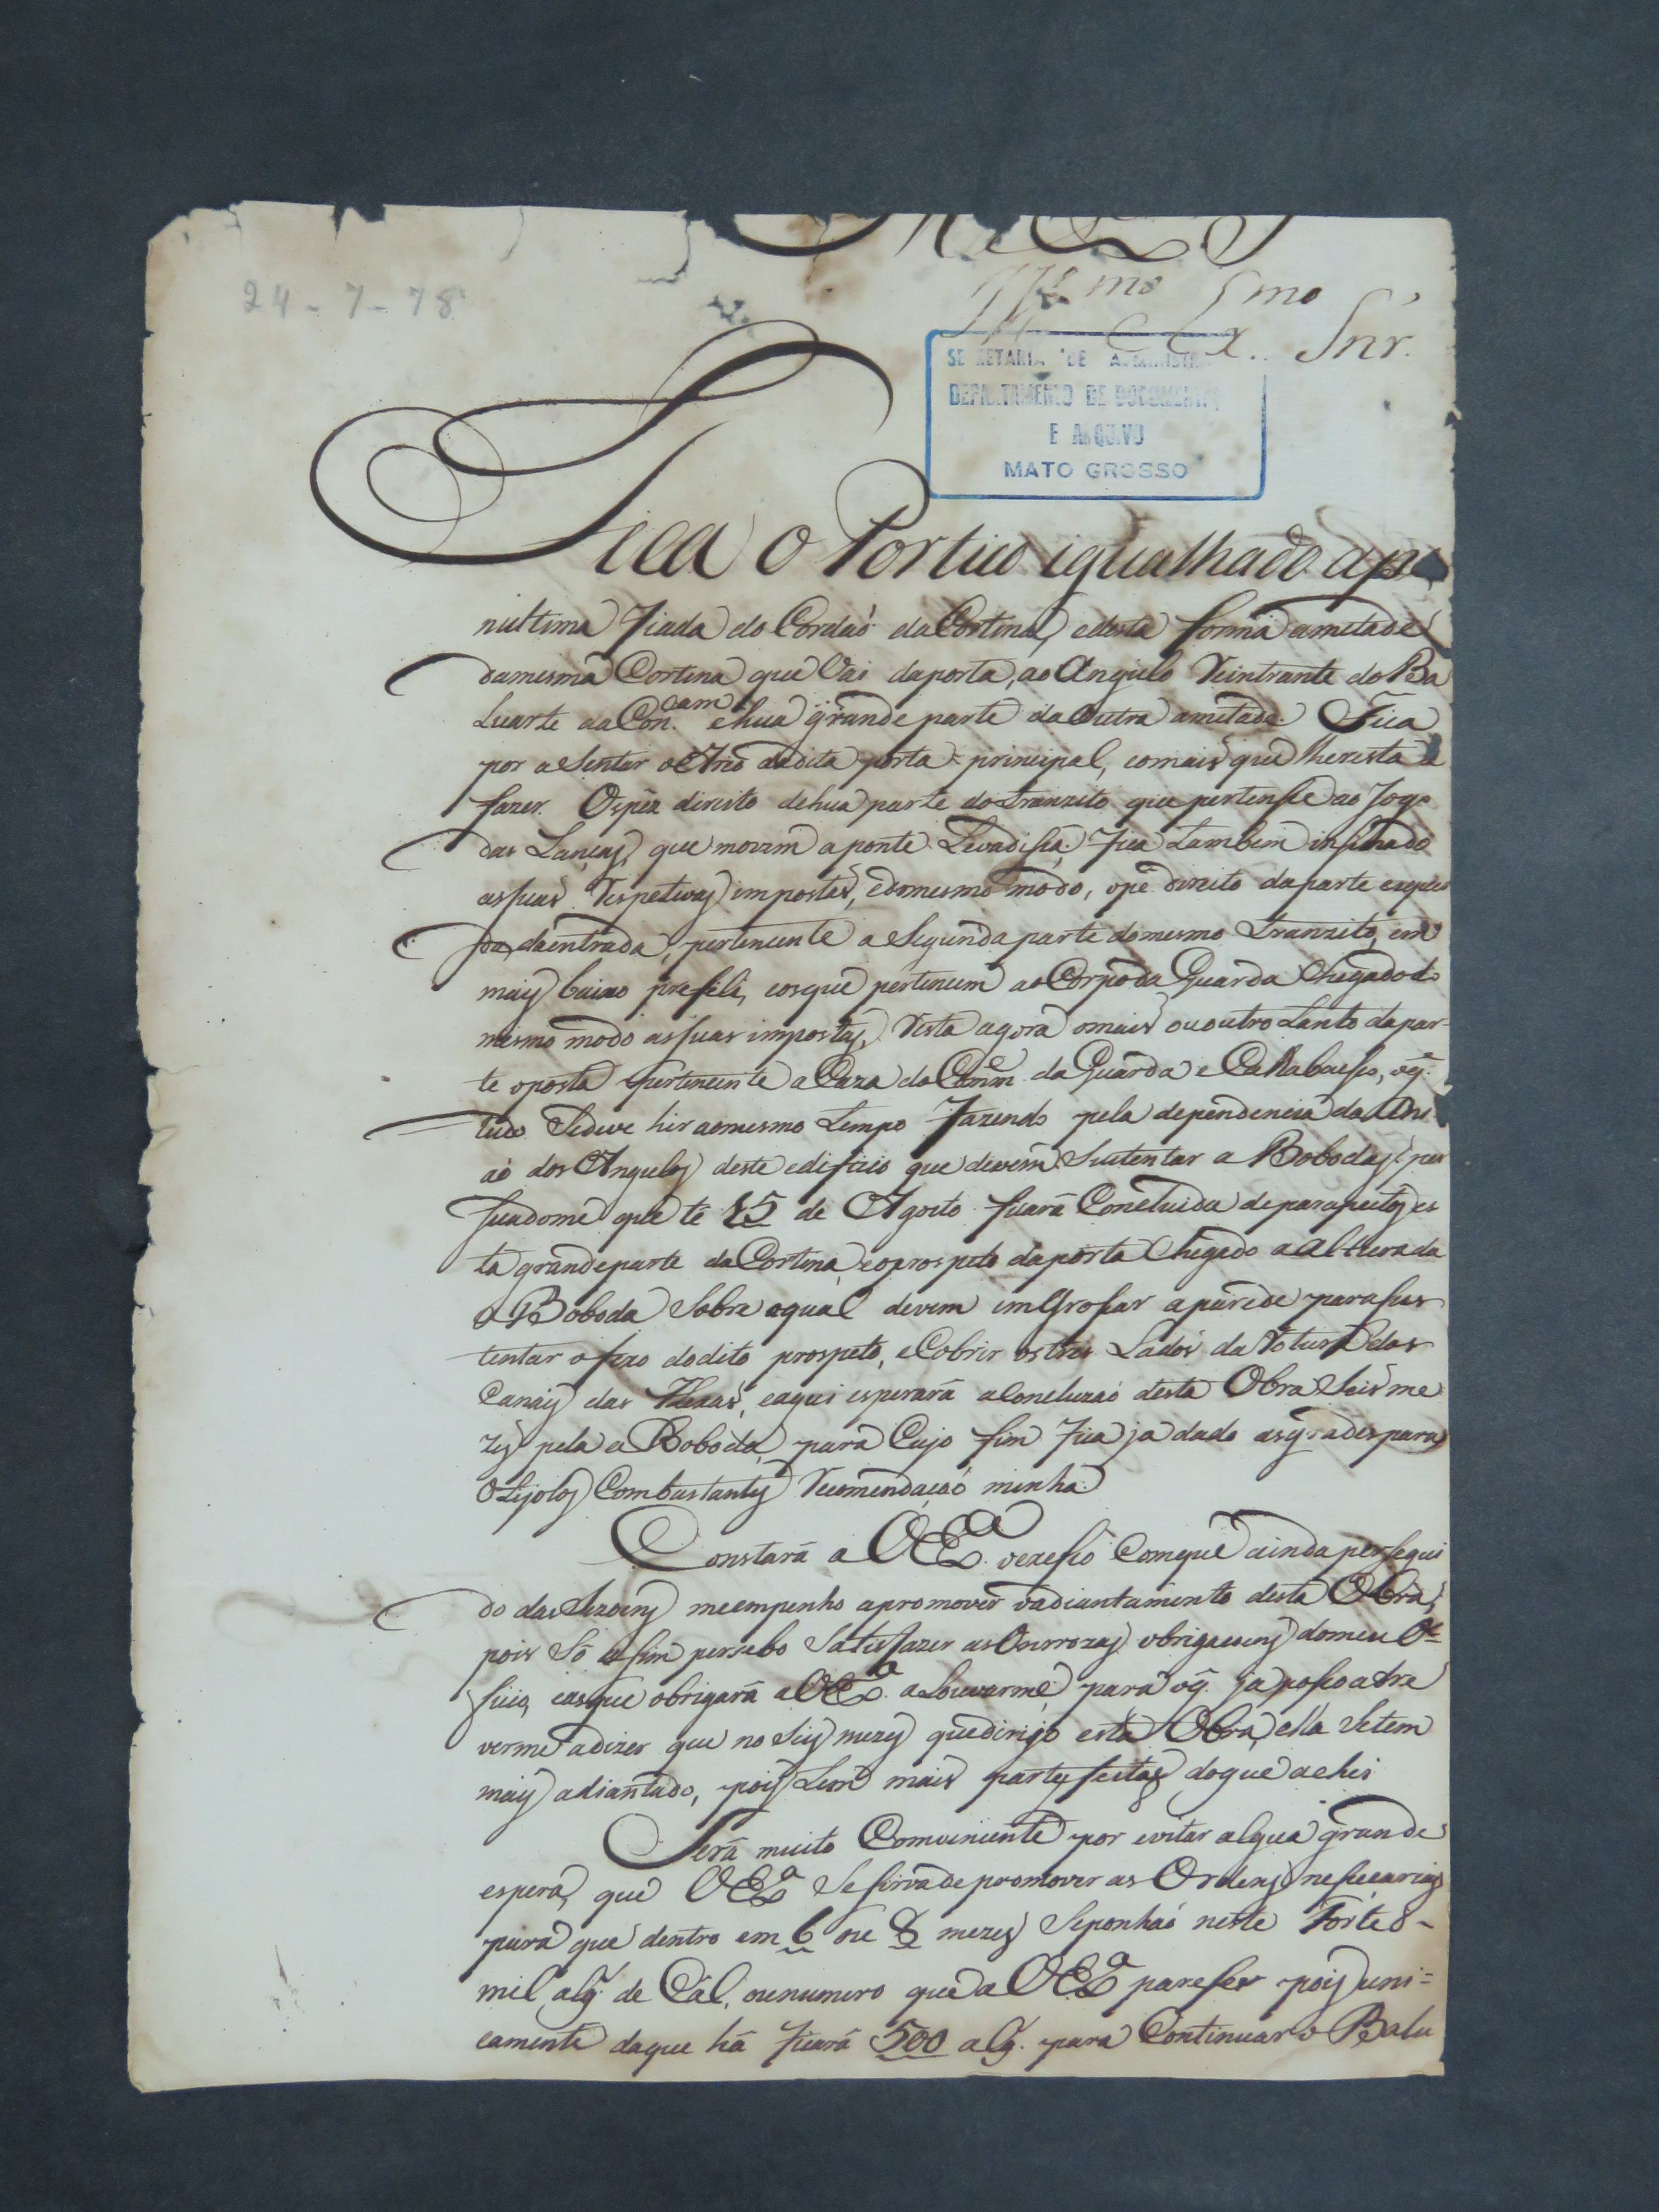 24-7-78
Ill.mo e Ex.mo Snr.
SECRETARIA DE ADMINISTRA
DEPARTAMENTO DE DOCUMENTA
E ARQUIVO
MATO GROSSO
Fica o Portico igualhado a pe
nultima Fiada do Cordaó da Cortina, e desta forma ametade
damesma Cortina que Vai daporta, ao Angulo Reintrante do Ba
Luarte da Con.cam e hua grande parte da outra ametade. Fica
por aSentar o Arco dadita porta principal, eomais que lheresta a
fazer. Ospéz direito dehua parte dotranzito que pertense ao Jogo
das Lanças, que movem a ponte Levadissa. Fica tambem
assuas Respetivas impostas, edomesmo modo, opé direito daparte esquer
da daentrada, pertencente a Segunda parte domesmo tranzito, em
mais baixo prefili, eosque pertencem ao Corpo da Guarda Chegado do
mesmo modo assuas impostas, Resta agora omais ououtro tanto dapar-
te oposta pertencente a Caza do Com.e da Guarda e Callabousso, oq̃.
tudo Sedeve hir aomesmo tempo Fazendo pela dependencia da Uni
aó dos Angulos deste edificio que devem Sustentar a Bobodas: per
suadome que té 15 de Agosto ficará Concluida deparapeitos es
ta grandeparte da Cortina, eoprospeto daporta Chegado a altura da
a Boboda Sobre aqual devem imGrossar aparede parasus
tentar opezo dodito prospeto, eCobrir ostres Lados da Rotura dos
Canais das , eaqui esperará aConcluzaó desta Obra Seis me
zes pela a Boboda, para Cujo fim Fica ja dado asgrades para
oTijolos Combastantes Recomendaçaó minha.
Constará a VEx.a oexesso Comque ainda persegui
do das Sezoens meempenho apromover oadiantamento desta Obra,
pois Só a sim persebo Satisfazer as Onrrozas obrigacoens domeu Of
ficio, easque obrigará aVEx.a aLouvarme; para oq̃. ja possoatre
verme adizer que no Seis mezes quedirijo esta Obra, ella Setem
mais adiantado, pois tem mais partes feitas doque achei
Será muito Comveniente por evitar algua grande
espera, que VEx.a Sesirva de promover as Ordens nessecarias
para que dentro em 6 ou 8 mezes Seponhaó neste Forte 8-
mil alq̃. de Cal, ounumero que a VEx.a pareser pois uni=
camente daque há ficará 500 alq̃. para Continuar o Balu